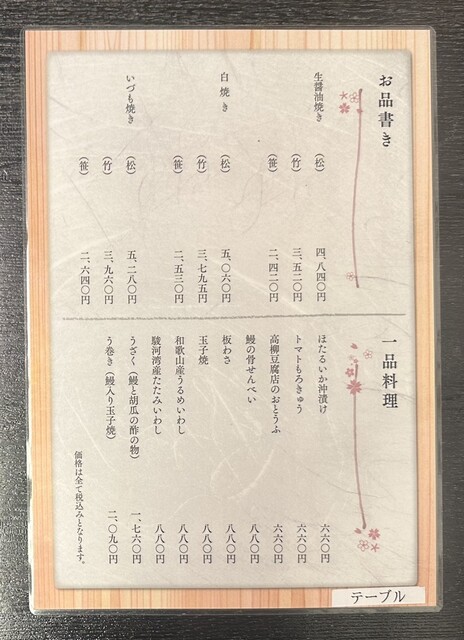 お品書き
生醤油焼き
（松） 四、八四〇円
（竹） 三、五二〇円
（笹） 二、四二〇円
白焼き
（松） 五、〇六〇円
（竹） 三、七九五円
（笹） 二、五三〇円
いづも焼き
（松） 五、二八〇円
（竹） 三、九六〇円
（笹） 二、六四〇円
一品料理
ほたるいか沖漬け 六六〇円
トマトもろきゅう 六六〇円
高柳豆腐店のおとうふ 六六〇円
鰻の骨せんべい 八八〇円
板わさ 八八〇円
玉子焼 八八〇円
和歌山産うるめいわし 八八〇円
駿河湾産たたみいわし 八八〇円
うざく（鰻と胡瓜の酢の物） 一、七六〇円
う巻き（鰻入り玉子焼） 二、〇九〇円
価格は全て税込みとなります。
テーブル